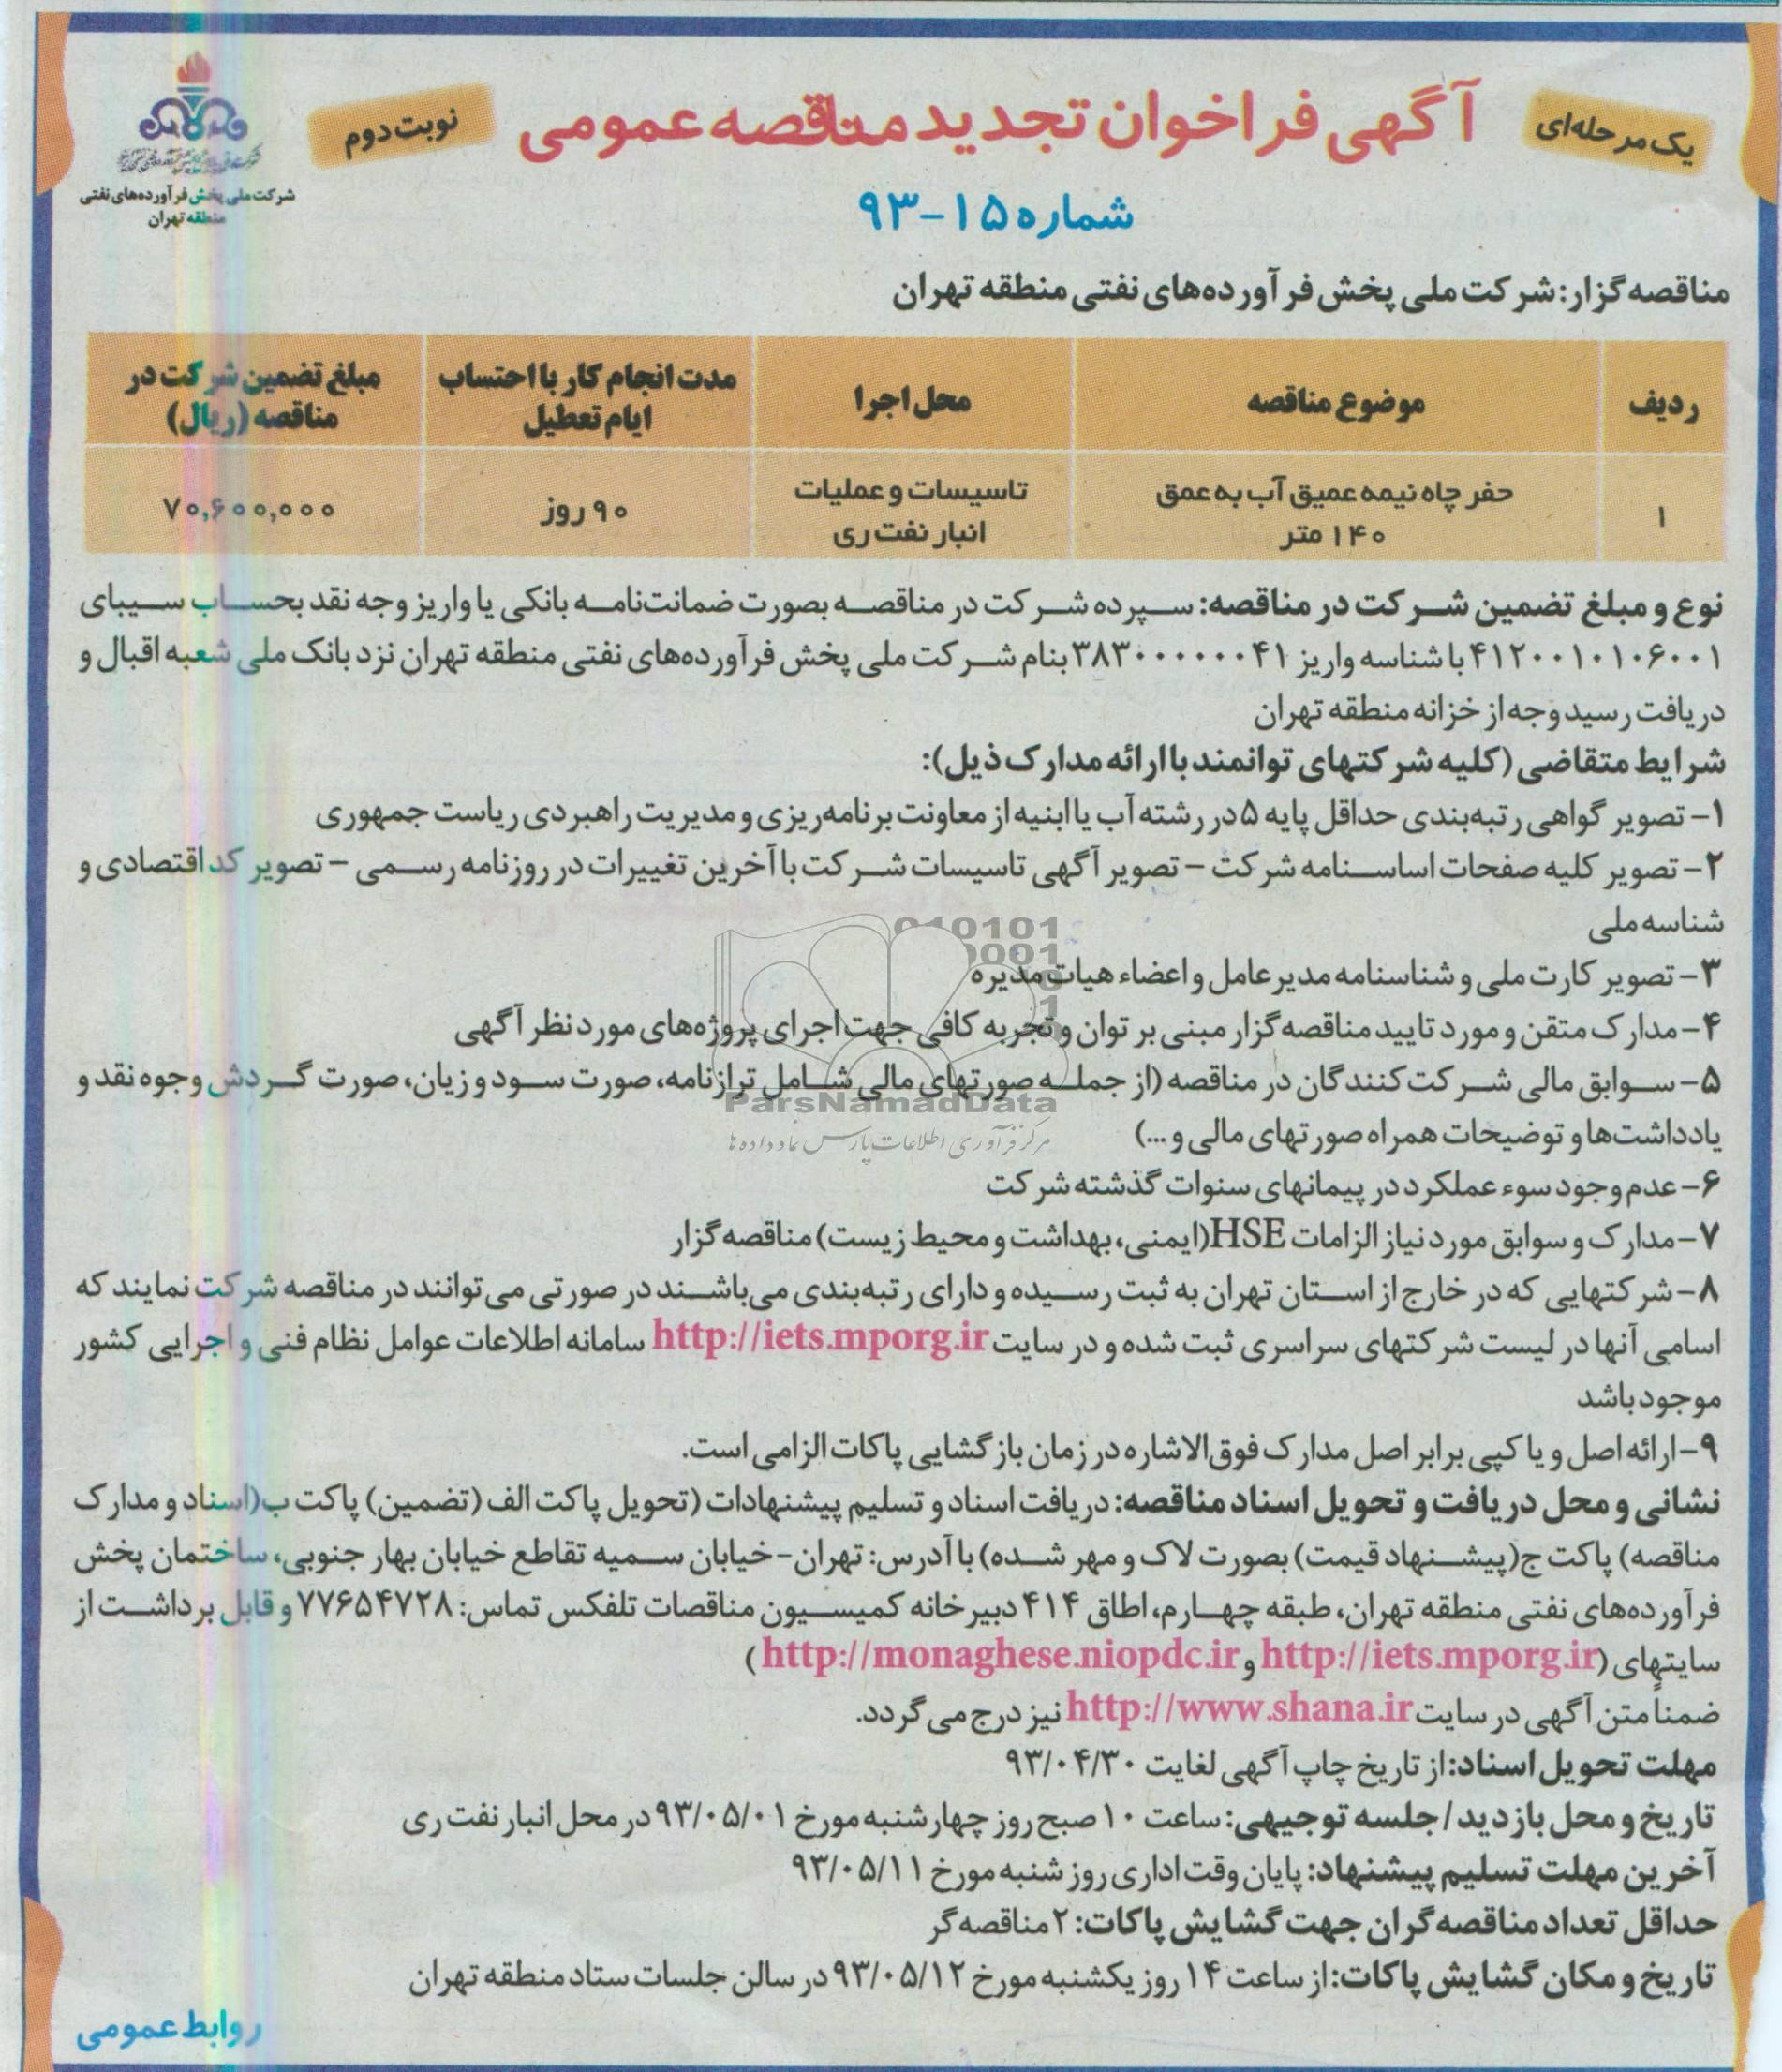 یک مرحله‌ای
آگهی فراخوان تجدید مناقصه عمومی
نوبت دوم
شماره ۱۵-۹۳
شرکت ملی پخش فرآورده‌های نفتی
منطقه تهران
مناقصه گزار: شرکت ملی پخش فرآورده‌های نفتی منطقه تهران
ردیف
موضوع مناقصه
محل اجرا
مدت انجام کار با احتساب
ایام تعطیل
مبلغ تضمین شرکت در
مناقصه (ریال)
۱
حفر چاه نیمه عمیق آب به عمق
۱۴۰ متر
تاسیسات و عملیات
انبار نفت ری
۹۰ روز
۷۰,۶۰۰,۰۰۰
نوع و مبلغ تضمین شرکت در مناقصه: سپرده شرکت در مناقصه بصورت ضمانت‌نامه بانکی یا واریز وجه نقد بحساب سیبای
۴۱۲۰۰۱۰۱۰۶۰۰۱ با شناسه واریز ۳۸۳۰۰۰۰۰۰۰۴۱ بنام شرکت ملی پخش فرآورده‌های نفتی منطقه تهران نزد بانک ملی شعبه اقبال و
دریافت رسید وجه از خزانه منطقه تهران
شرایط متقاضی (کلیه شرکتهای توانمند با ارائه مدارک ذیل):
۱- تصویر گواهی رتبه‌بندی حداقل پایه ۵ در رشته آب یا ابنیه از معاونت برنامه‌ریزی و مدیریت راهبردی ریاست جمهوری
۲- تصویر کلیه صفحات اساسنامه شرکت - تصویر آگهی تاسیسات شرکت با آخرین تغییرات در روزنامه رسمی - تصویر کد اقتصادی و
شناسه ملی
۳- تصویر کارت ملی و شناسنامه مدیر عامل و اعضاء هیات مدیره
۴- مدارک متقن و مورد تایید مناقصه گزار مبنی بر توان و تجربه کافی جهت اجرای پروژه‌های مورد نظر آگهی
۵- سوابق مالی شرکت کنندگان در مناقصه (از جمله صورتهای مالی شامل ترازنامه، صورت سود و زیان، صورت گردش وجوه نقد و
یادداشت‌ها و توضیحات همراه صورتهای مالی و...)
۶- عدم وجود سوء عملکرد در پیمانهای سنوات گذشته شرکت
۷- مدارک و سوابق مورد نیاز الزامات HSE (ایمنی، بهداشت و محیط زیست) مناقصه گزار
۸- شرکتهایی که در خارج از استان تهران به ثبت رسیده و دارای رتبه‌بندی می‌باشند در صورتی می‌توانند در مناقصه شرکت نمایند که
اسامی آنها در لیست شرکتهای سراسری ثبت شده و در سایت http://iets.mporg.ir سامانه اطلاعات عوامل نظام فنی و اجرایی کشور
موجود باشد
۹- ارائه اصل و یا کپی برابر اصل مدارک فوق‌الاشاره در زمان بازگشایی پاکات الزامی است.
نشانی و محل دریافت و تحویل اسناد مناقصه: دریافت اسناد و تسلیم پیشنهادات (تحویل پاکت الف (تضمین) پاکت ب (اسناد و مدارک
مناقصه) پاکت ج (پیشنهاد قیمت) بصورت لاک و مهر شده) با آدرس: تهران- خیابان سمیه تقاطع خیابان بهار جنوبی، ساختمان پخش
فرآورده‌های نفتی منطقه تهران، طبقه چهارم، اطاق ۴۱۴ دبیرخانه کمیسیون مناقصات تلفکس تماس: ۷۷۶۵۴۷۲۸ و قابل برداشت از
سایتهای (http://iets.mporg.ir و http://monaghese.niopdc.ir)
ضمناً متن آگهی در سایت http://www.shana.ir نیز درج می گردد.
مهلت تحویل اسناد: از تاریخ چاپ آگهی لغایت ۹۳/۰۴/۳۰
تاریخ و محل بازدید / جلسه توجیهی: ساعت ۱۰ صبح روز چهارشنبه مورخ ۹۳/۰۵/۰۱ در محل انبار نفت ری
آخرین مهلت تسلیم پیشنهاد: پایان وقت اداری روز شنبه مورخ ۹۳/۰۵/۱۱
حداقل تعداد مناقصه گران جهت گشایش پاکات: ۲ مناقصه گر
تاریخ و مکان گشایش پاکات: از ساعت ۱۴ روز یکشنبه مورخ ۹۳/۰۵/۱۲ در سالن جلسات ستاد منطقه تهران
روابط عمومی
ParsNamadData
مرکز فرآوری اطلاعات پارس نماد داده ها